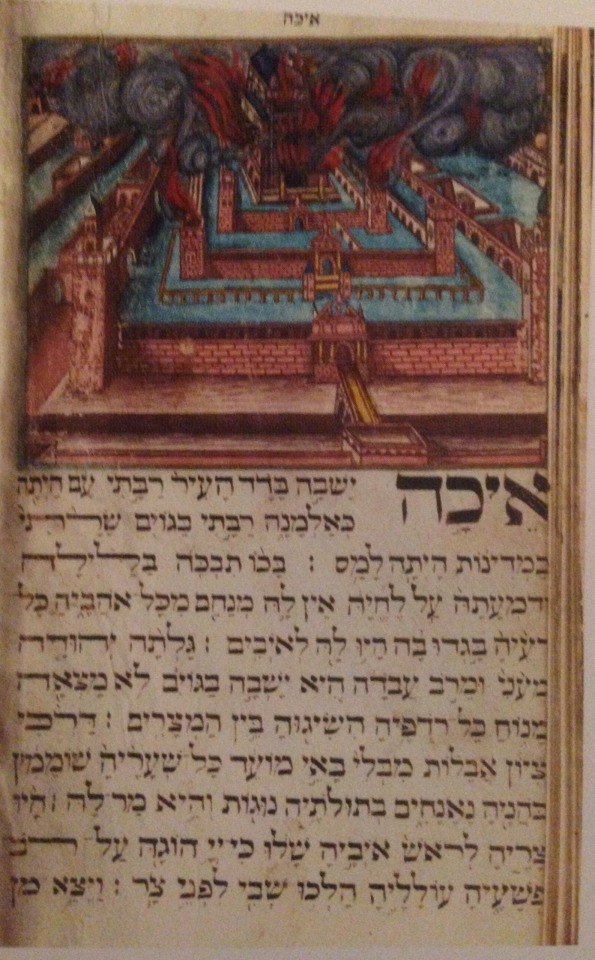 איכה
איכה ישבה בדד העיר רבתי עם היתה
כאלמנה רבתי בגוים שרתי
במדינות היתה למס : בכו תבכה בלילה
ודמעתה על לחיה אין לה מנחם מכל אהביה כל
רעיה בגדו בה היו לה לאיבים : גלתה יהודה
מעני ומרב עבדה היא ישבה בגוים לא מצאה
מנוח כל רדפיה השיגוה בין המצרים : דרכי
ציון אבלות מבלי באי מועד כל שעריה שוממין
כהניה נאנחים בתולתיה נוגות והיא מר לה : היו
צריה לראש איביה שלו כי יי הוגה על רב
פשעיה עולליה הלכו שבי לפני צר : ויצא מן